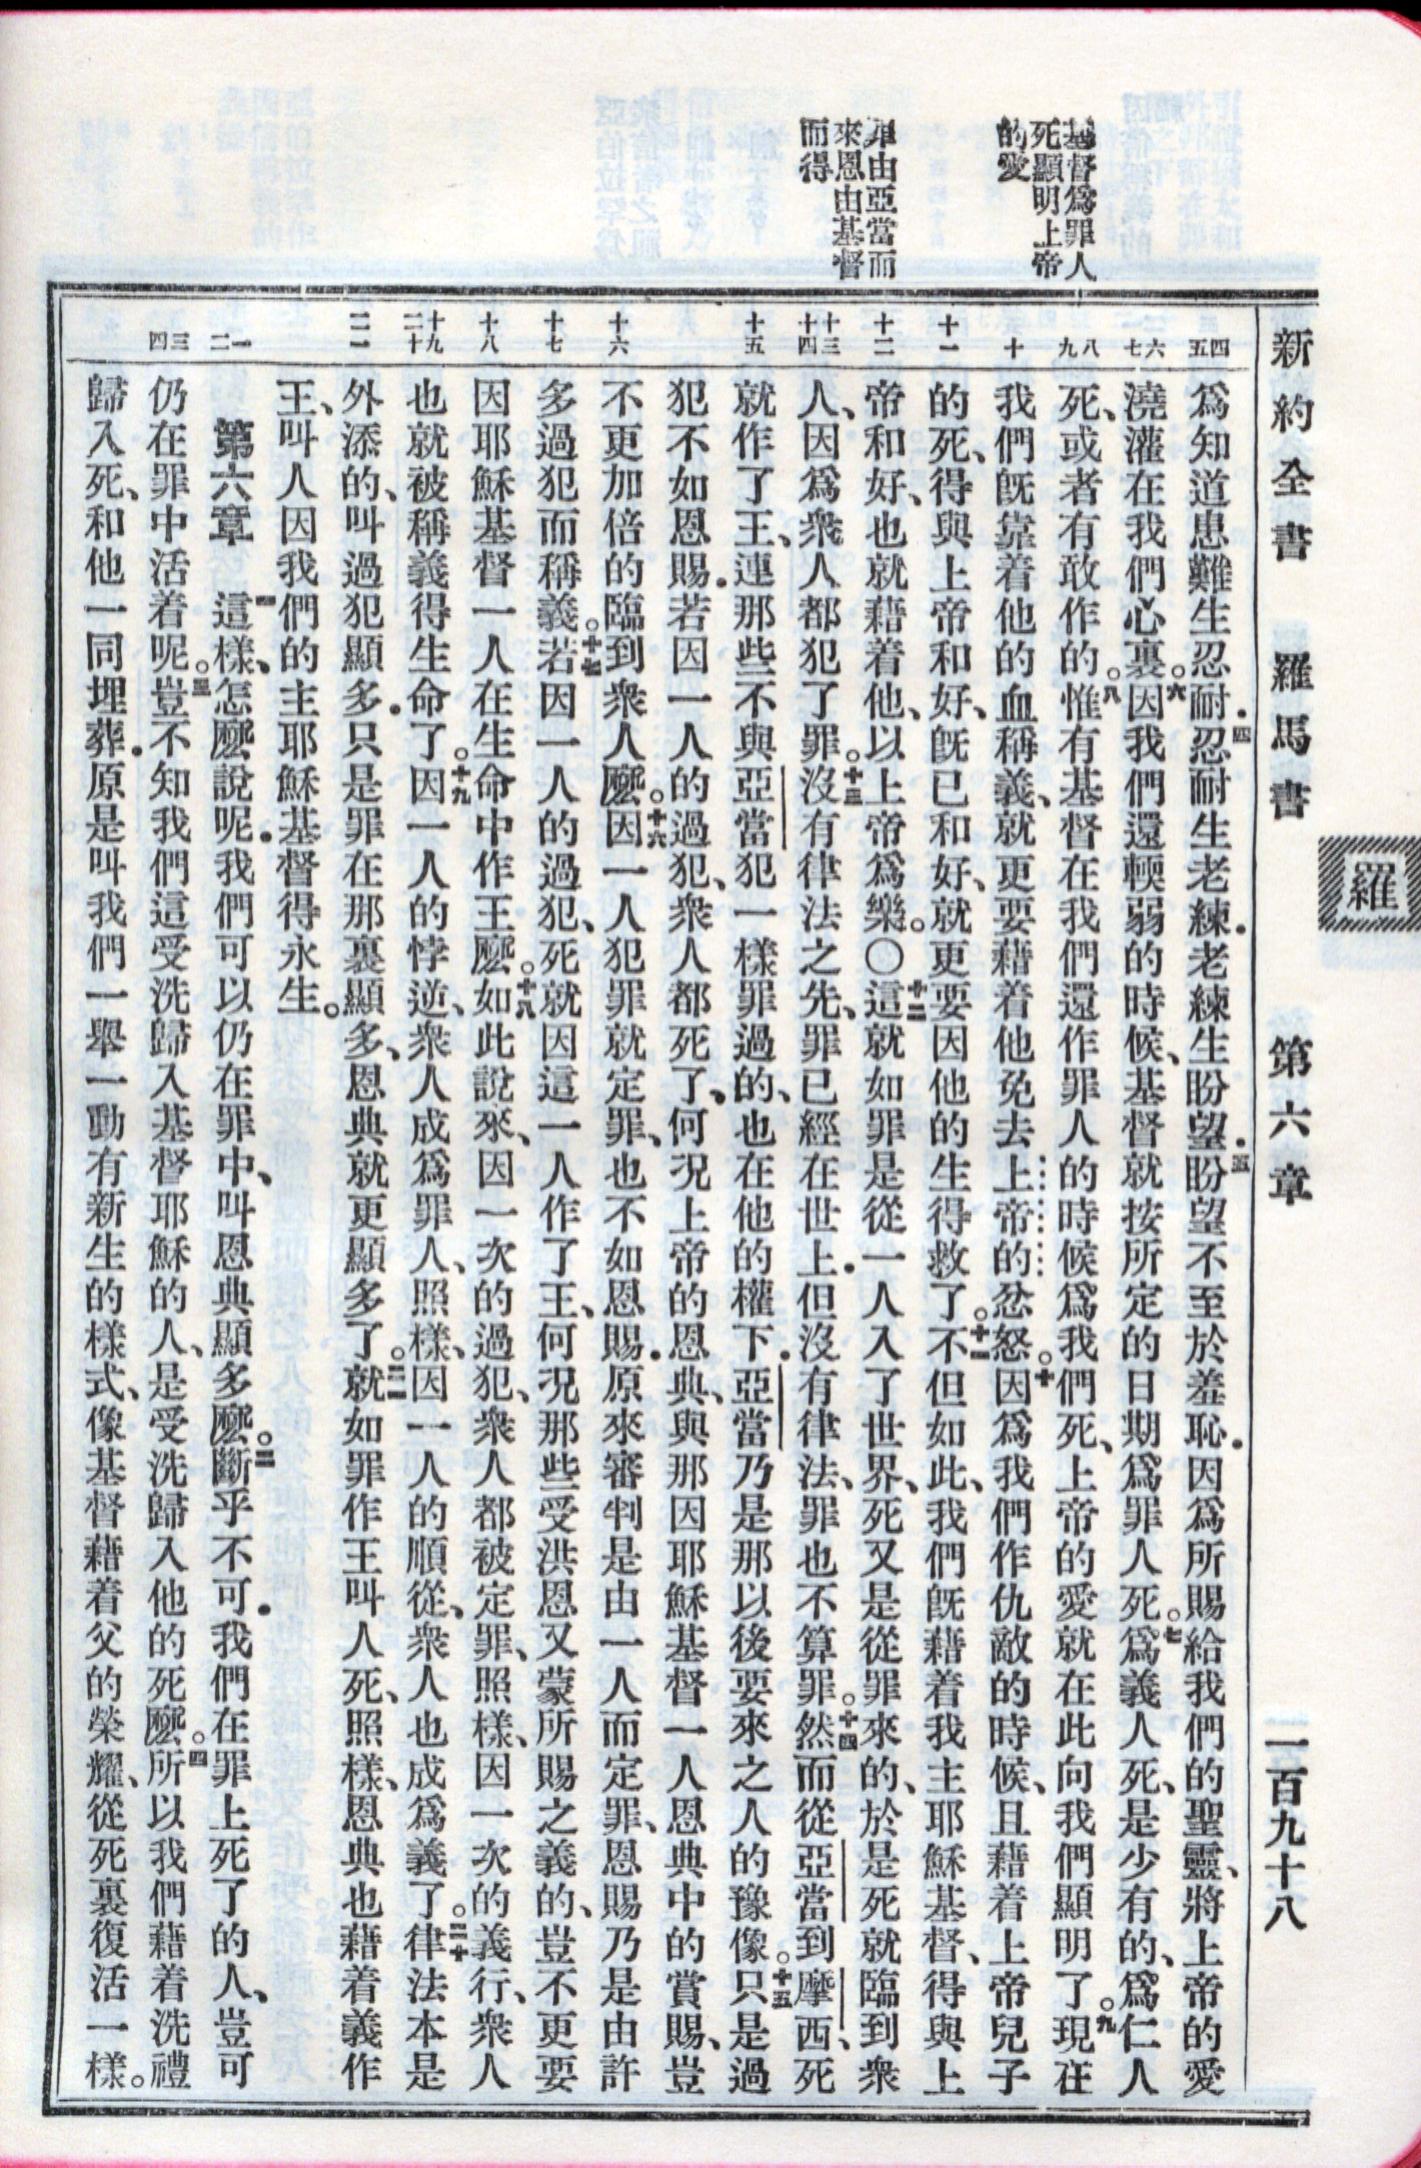 新約全書　羅馬書　第六章　二百九十八
羅
基督爲罪人
死顯明上帝
的愛
罪由亞當而
來恩由基督
而得
四
五
六
七
八
九
十
十一
十二
十三
十四
十五
十六
十七
十八
十九
二十
二一
一
二
三
四
爲知道患難生忍耐．四忍耐生老練．老練生盼望．五盼望不至於羞恥．因爲所賜給我們的聖靈、將上帝的愛
澆灌在我們心裏。六因我們還輭弱的時候、基督就按所定的日期爲罪人死。七爲義人死、是少有的、爲仁人
死、或者有敢作的。八惟有基督在我們還作罪人的時候爲我們死、上帝的愛就在此向我們顯明了。九現在
我們旣靠着他的血稱義、就更要藉着他免去上帝的忿怒。十因爲我們作仇敵的時候、且藉着上帝兒子
的死、得與上帝和好、旣已和好、就更要因他的生得救了。十一不但如此、我們旣藉着我主耶穌基督、得與上
帝和好、也就藉着他、以上帝爲樂。〇十二這就如罪是從一人入了世界、死又是從罪來的、於是死就臨到衆
人、因爲衆人都犯了罪。十三沒有律法之先、罪已經在世上．但沒有律法、罪也不算罪。十四然而從亞當到摩西、死
就作了王、連那些不與亞當犯一樣罪過的、也在他的權下．亞當乃是那以後要來之人的豫像。十五只是過
犯不如恩賜．若因一人的過犯、衆人都死了、何况上帝的恩典、與那因耶穌基督一人恩典中的賞賜、豈
不更加倍的臨到衆人麽。十六因一人犯罪就定罪、也不如恩賜．原來審判是由一人而定罪、恩賜乃是由許
多過犯而稱義。十七若因一人的過犯、死就因這一人作了王、何况那些受洪恩又蒙所賜之義的、豈不更要
因耶穌基督一人在生命中作王麽。十八如此說來、因一次的過犯、衆人都被定罪、照樣、因一次的義行、衆人
也就被稱義得生命了。十九因一人的悖逆、衆人成爲罪人、照樣、因一人的順從、衆人也成爲義了。二十律法本是
外添的、叫過犯顯多．只是罪在那裏顯多、恩典就更顯多了。二一就如罪作王叫人死、照樣、恩典也藉着義作
王、叫人因我們的主耶穌基督得永生。
第六章　一這樣、怎麽說呢．我們可以仍在罪中、叫恩典顯多麽。二斷乎不可．我們在罪上死了的人、豈可
仍在罪中活着呢。三豈不知我們這受洗歸入基督耶穌的人、是受洗歸入他的死麽。四所以我們藉着洗禮
歸入死、和他一同埋葬．原是叫我們一舉一動有新生的樣式、像基督藉着父的榮耀、從死裏復活一樣。